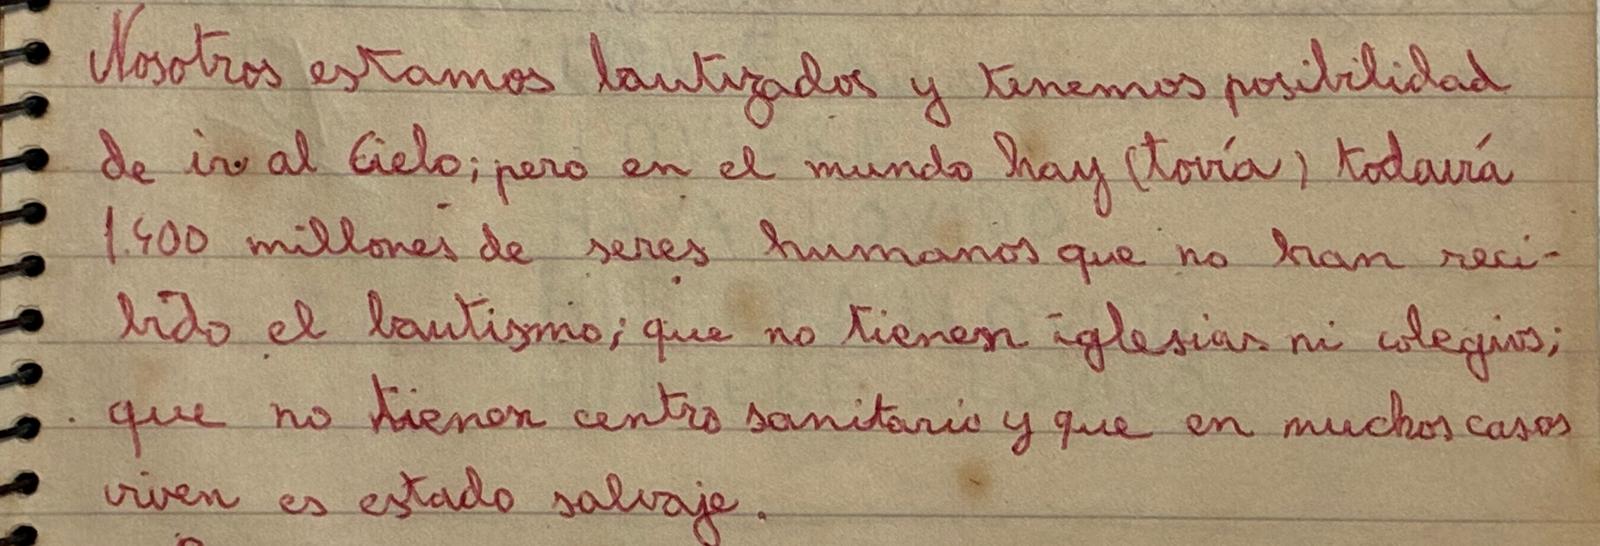 Nosotros estamos bautizados y tenemos posibilidad
de ir al Cielo; pero en el mundo hay (tovía) todavía
1.400 millones de seres humanos que no han reci-
bido el bautismo; que no tienen iglesias ni colegios;
que no tienen centro sanitario y que en muchos casos
viven es estado salvaje.